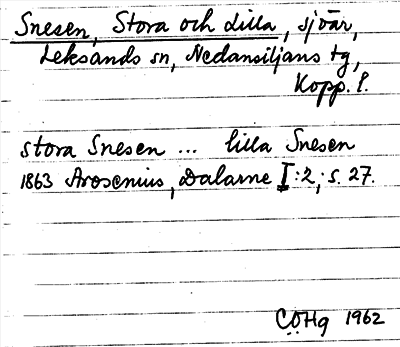 Snesen, Stora och Lilla, sjöar,
Leksands sn, Nedansiljans tg,
Kopp. l.
stora Snesen ... lilla Snesen
1863 Arosenius, Dalarne I:2, s. 27.
CÖHg 1962